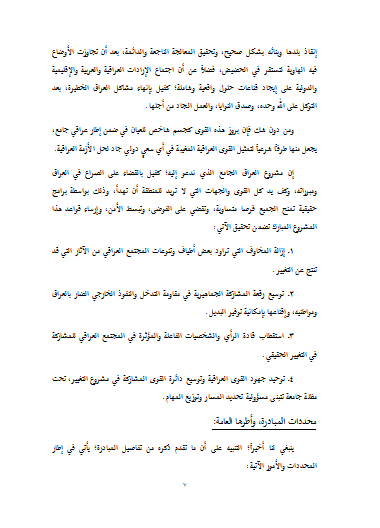 إنقاذ بلدها وبنائه بشكل صحيح، وتحقيق المعالجة الناجعة والدائمة، بعد أن تجاوزت الأوضاع
فيه الهاوية لتستقر في الحضيض، فضلاً عن أن اجتماع الإرادات العراقية والعربية والإقليمية
والدولية على إيجاد قناعات حلول واقعية وشاملة؛ كفيل بإنهاء مشاكل العراق الخطيرة، بعد
التوكل على الله وحده، وصدق النوايا، والعمل الجاد من أجلها.
ومن دون شك فإن بروز هذه القوى كجسم شاخص للعيان في ضمن إطار عراقي جامع،
يجعل منها طرفًا شرعياً لتمثيل القوى العراقية المغيبة في أي سعي دولي جاد لحل الأزمة العراقية.
إن مشروع العراق الجامع الذي ندعو إليه؛ كفيل بالقضاء على الصراع في العراق
ومبرراته، وكف يد كل القوى والجهات التي لا تريد للمنطقة أن تهدأ، وذلك بواسطة برامج
حقيقية تمنح الجميع فرصا متساوية، وتقضي على الفوضى، وتبسط الأمن، وإرساء قواعد هذا
المشروع المبارك تضمن تحقيق الآتي:
١. إزالة المخاوف التي تراود بعض أطياف وتنوعات المجتمع العراقي من الآثار التي قد
تنتج عن التغيير.
٢. توسيع رقعة المشاركة الجماهيرية في مقاومة التدخل والنفوذ الخارجي الضار بالعراق
ومواطنيه، وإقناعها بإمكانية توفير البديل.
٣. استقطاب قادة الرأي والشخصيات الفاعلة والمؤثرة في المجتمع العراقي للمشاركة
في التغيير الحقيقي.
٤. توحيد جهود القوى العراقية وتوسيع دائرة القوى المشاركة في مشروع التغيير، تحت
مظلة جامعة تتبنى مسؤولية تحديد المسار وتوزيع المهام.
محددات المبادرة، وأطرها العامة:
ينبغي لنا أخيراً؛ التنبيه على أن ما تقدم ذكره من تفاصيل المبادرة؛ يأتي في إطار
المحددات والأمور الآتية: